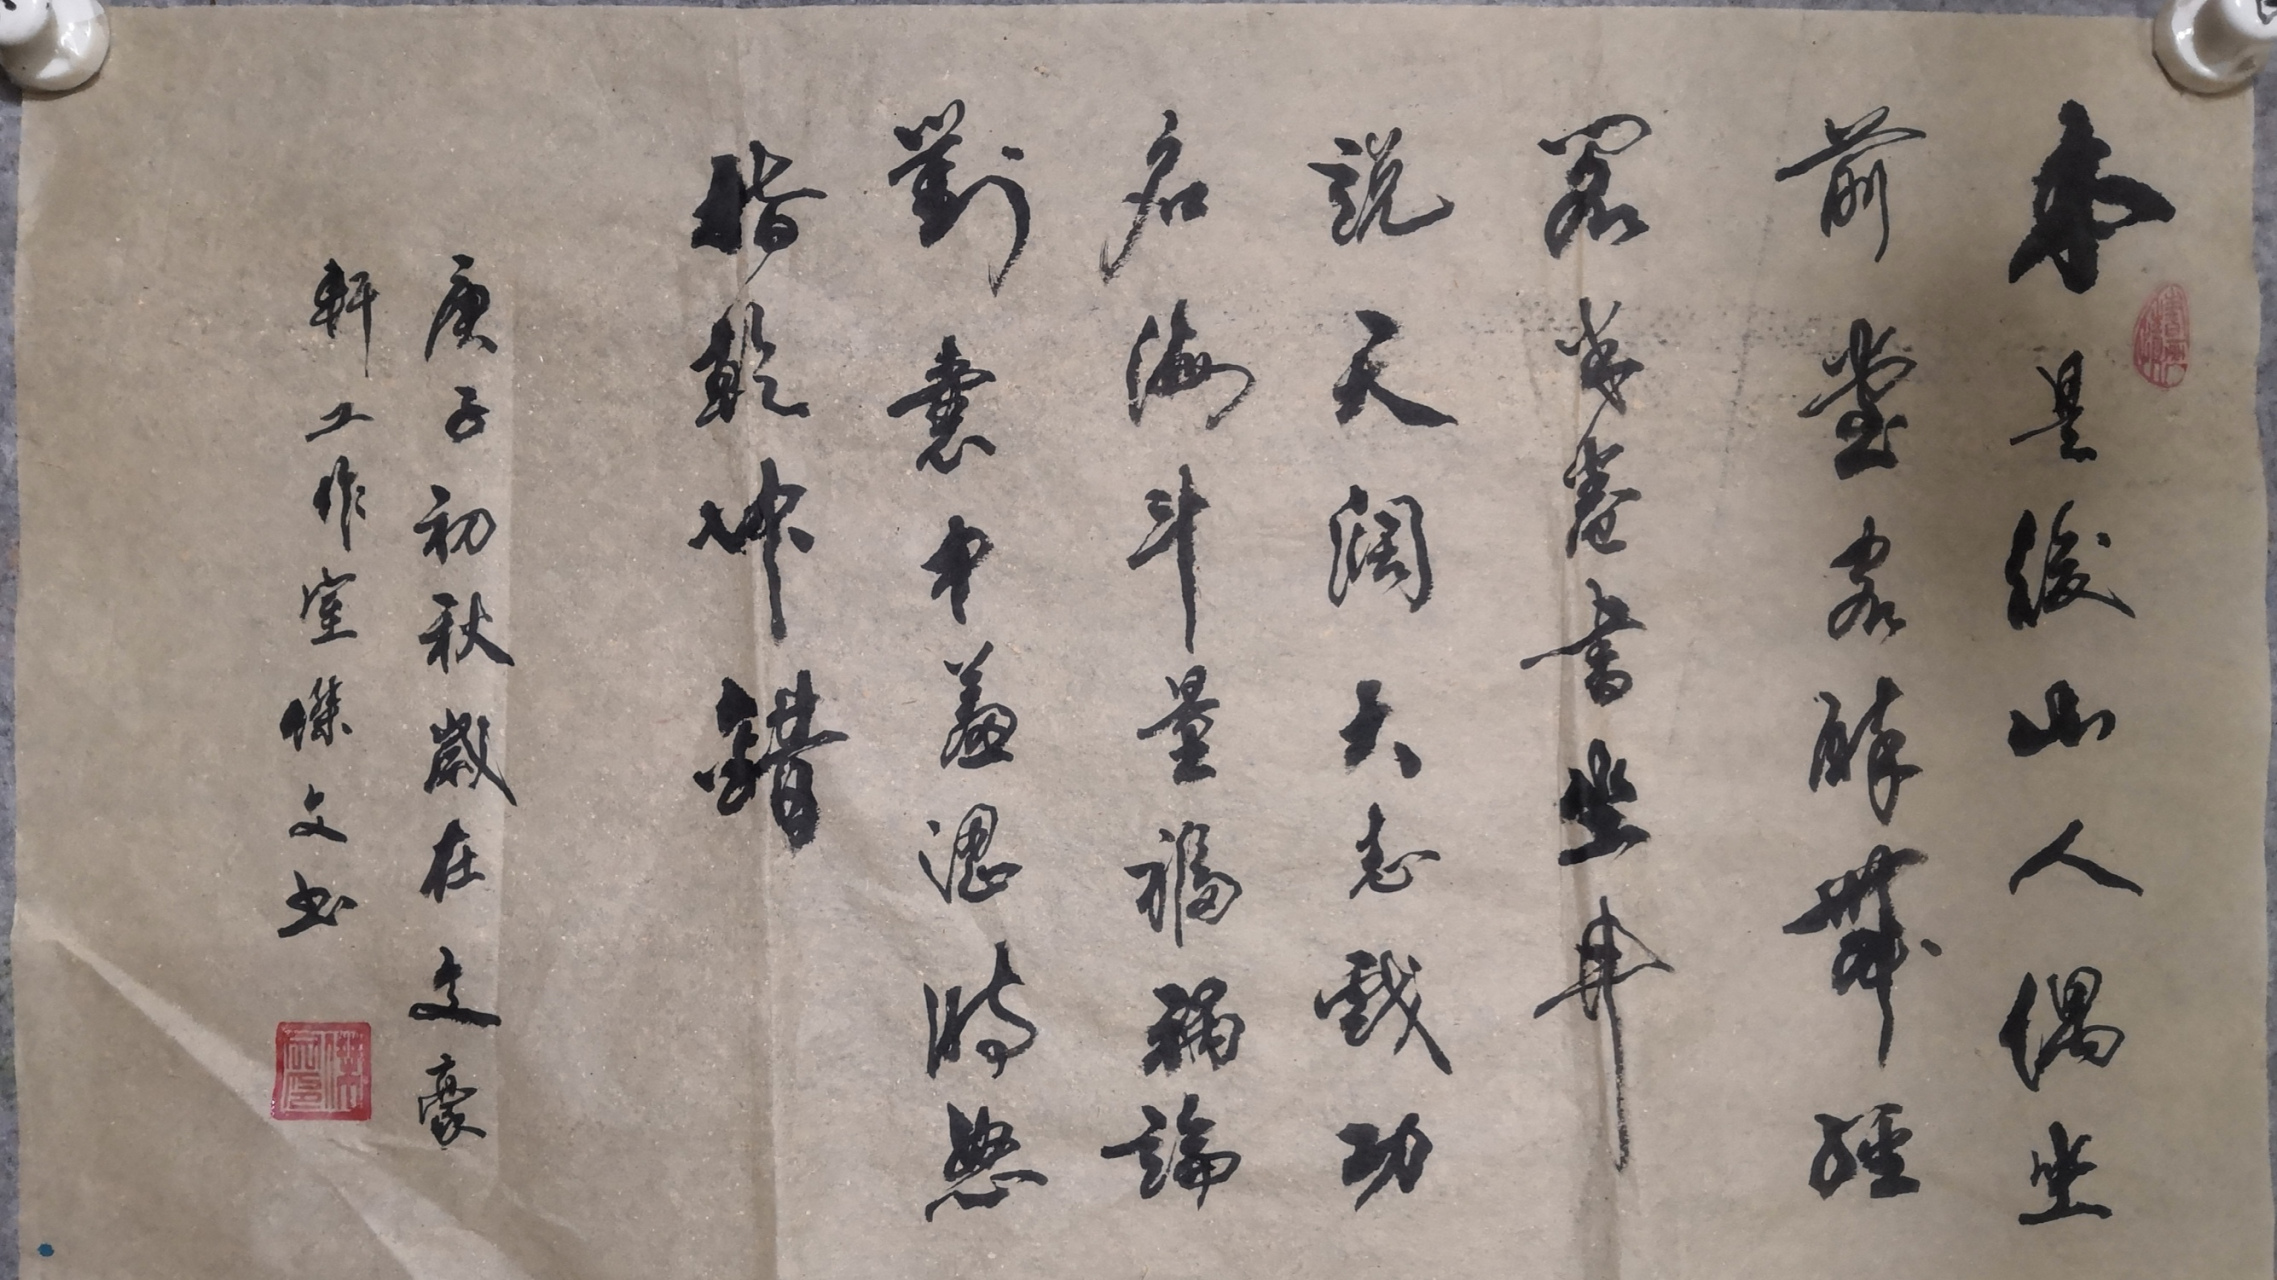 本是後山人偶坐
前堂客醉舞經
閣半卷書坐井
說天闊大志戲功
名海斗量福禍論
對囊中羞澀時怒
指乾坤錯
庚子初秋歲在文豪
軒工作室傑文书